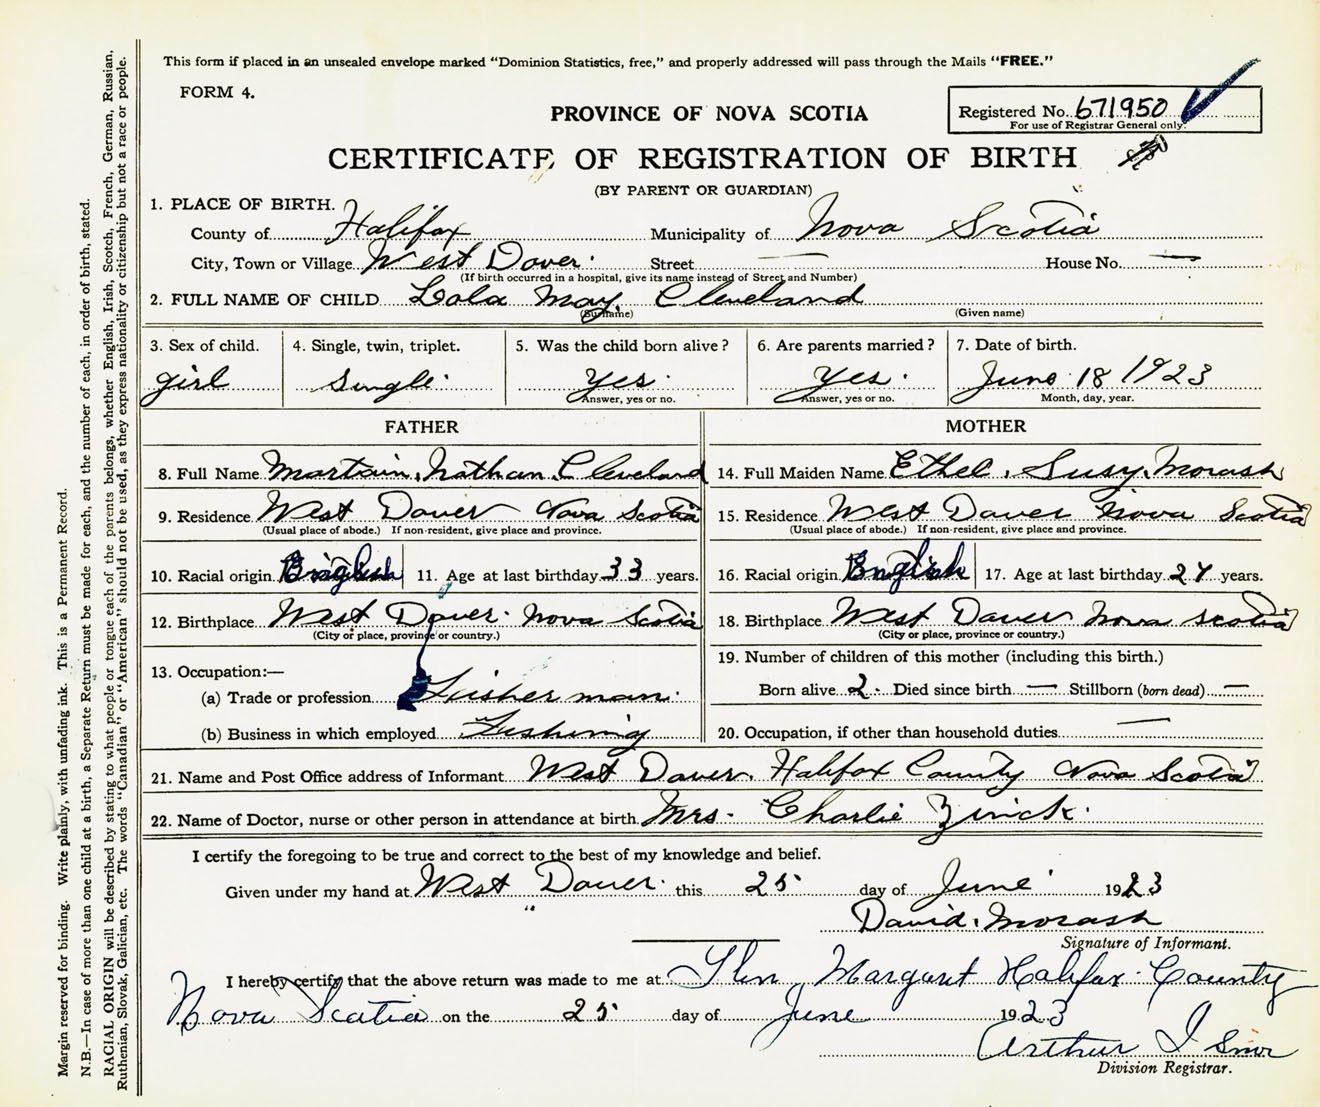 This form if placed in an unsealed envelope marked "Dominion Statistics, free," and properly addressed will pass through the Mails "FREE."
FORM 4.
PROVINCE OF NOVA SCOTIA
Registered No. 671950
For use of Registrar General only.
CERTIFICATE OF REGISTRATION OF BIRTH
(BY PARENT OR GUARDIAN)
1. PLACE OF BIRTH.
County of Halifax Municipality of Nova Scotia
City, Town or Village West Dover Street — House No. —
(If birth occurred in a hospital, give its name instead of Street and Number)
2. FULL NAME OF CHILD Lola May Cleveland
(Surname) (Given name)
3. Sex of child. 4. Single, twin, triplet. 5. Was the child born alive? 6. Are parents married? 7. Date of birth.
girl Single Yes. Yes. June 18 1923
Answer, yes or no. Answer, yes or no. Month, day, year.
FATHER MOTHER
8. Full Name Martain Nathan Cleveland 14. Full Maiden Name Ethel Susy Morash
9. Residence West Dover Nova Scotia 15. Residence West Dover Nova Scotia
(Usual place of abode.) If non-resident, give place and province. (Usual place of abode.) If non-resident, give place and province.
10. Racial origin English 11. Age at last birthday 33 years. 16. Racial origin English 17. Age at last birthday years.
12. Birthplace West Dover Nova Scotia 18. Birthplace West Dover Nova Scotia
(City or place, province or country.) (City or place, province or country.)
13. Occupation:— 19. Number of children of this mother (including this birth.)
(a) Trade or profession Fisherman Born alive 2 Died since birth — Stillborn (born dead) —
(b) Business in which employed Fishing 20. Occupation, if other than household duties —
21. Name and Post Office address of Informant West Dover, Halifax County Nova Scotia
22. Name of Doctor, nurse or other person in attendance at birth Mrs. Charlie Zinck.
I certify the foregoing to be true and correct to the best of my knowledge and belief.
Given under my hand at West Dover this 25 day of June 1923
David Morash
Signature of Informant.
I hereby certify that the above return was made to me at Glen Margaret Halifax County
Nova Scotia on the 25 day of June 1923
Arthur I
Division Registrar.
Margin reserved for binding. Write plainly, with unfading ink. This is a Permanent Record.
N.B.—In case of more than one child at a birth, a Separate Return must be made for each, and the number of each, in order of birth, stated.
RACIAL ORIGIN will be described by stating to what people or tongue each of the parents belongs, whether English, Irish, Scotch, French, German, Russian,
Ruthenian, Slovak, Galician, etc. The words "Canadian" or "American" should not be used, as they express nationality or citizenship but not a race or people.